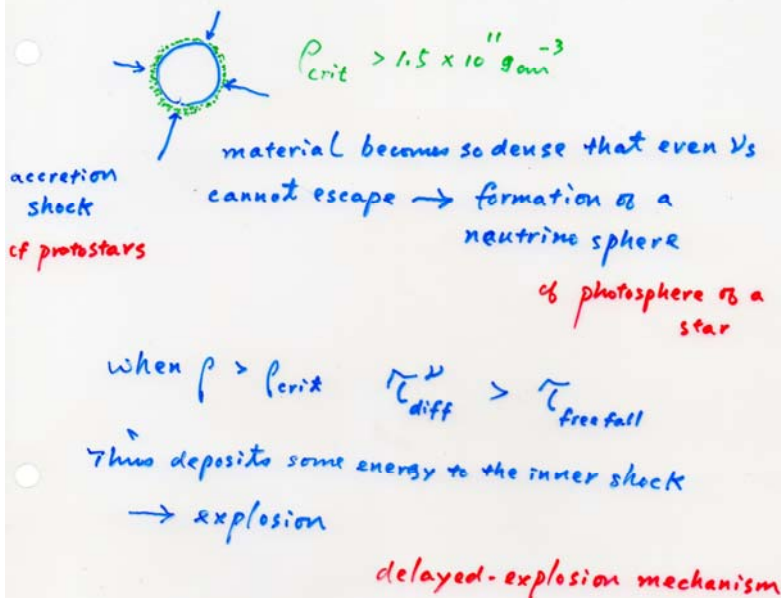 ρcrit > 1.5 × 10¹¹ g cm⁻³
accretion
shock
cf protostars
material becomes so dense that even νs
cannot escape → formation of a
neutrino sphere
cf photosphere of a
star
when ρ > ρcrit τ^ν_diff > τ_free fall
Thus deposits some energy to the inner shock
→ explosion
delayed-explosion mechanism